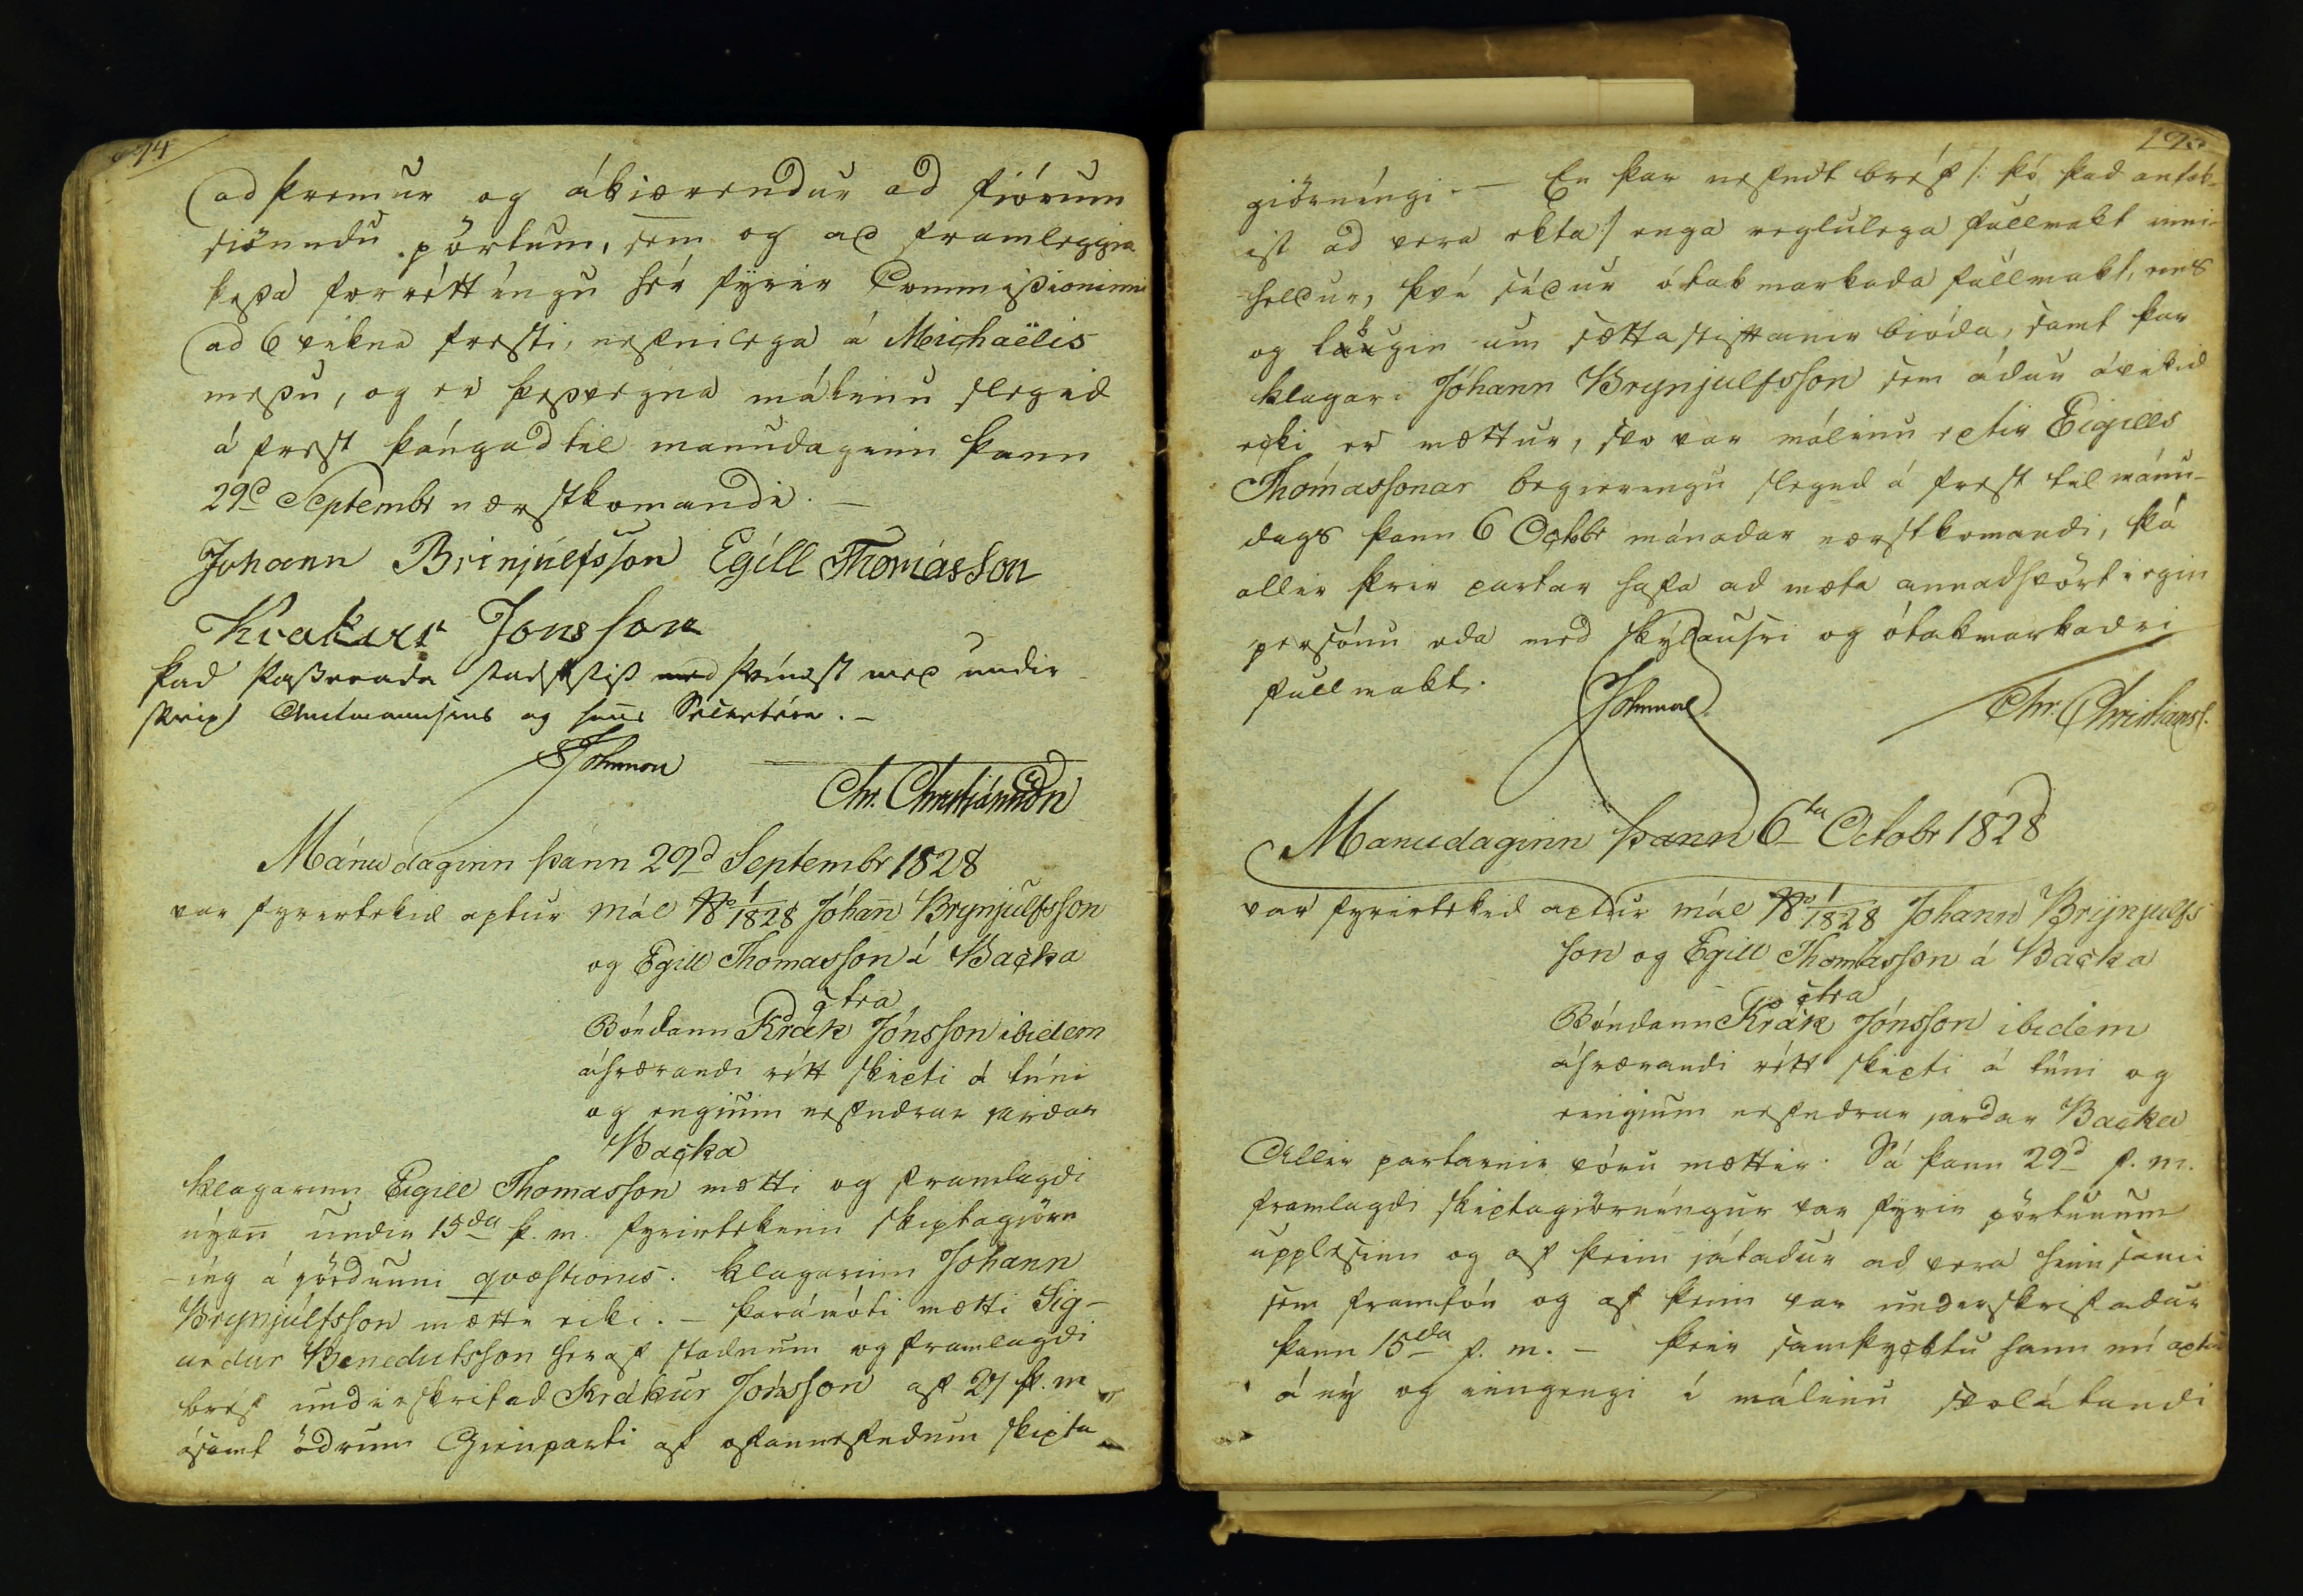 ad þremur og ákiærendur ad fiórum
siöundu pörtum, sem og ad framleggia
þessa forréttíngu hér fyrir Commissioninni
ad 6 vikna fresti, nefnilega á Michaëlis
messu, og er þessvegna málinu slegid
á frest þángad til manudaginn þann
29d Septembr næstkomandi. —
Johann Brinjúlfsson Egill Thomásson
Krakur Jonsson
Þad Passerada stadfestist med
skript Amtmannsins og hans Secretéra. —
Johnson
Chr. Christiánsson
Mánudaginn þann 29d Septembr 1828
var fyrirtekid aptur mál No 1/1828 Jóhann Brynjulfsson
og Egill Thomasson á Backa
ctra
Bóndann Krák Jónsson ibidem
áhrærandi rétt skipti á túni
og engium nefndrar jardar
Backa
Klagarinn Eigill Thomasson mætti og framlagdi
nýann undir 15da þ. m. fyrirtekinn skiptagiörn
-íng á jördunni qvæstionis. Klagarinn Johann
Brynjúlfsson mætte ecki. — Þarámóti mætti Sig-
urdur Benedictsson hér af stadnum og framlagdi
bréf undirskrifad Krákur Jónsson af 27 þ. m
ásamt ödrum Gienparti af ofannefndum skipta
giörníngi. — En þar nefndt bréf /: þó þad antek-
ist ad vera ekta :/ enga reglulega fullmakt inni-
heldur, því sídur ótakmarkada fullmakt, eins
og laugin um sættastiftanir bióda, samt þar
klagari Jóhann Brynjulfsson sem ádur ávikid
ecki er mættur, svo var málinu eptir Eigills
Thomassonar begieringu slegid á frest til mánu-
dags þann 6 Octobr mánadar næstkomandi, þá
allir þrír partar hafa ad mæta annadhvört i egin
persónu eda med skýlausri og ótakmarkadri
fullmakt.
Johnson
Chr. Christianss.
Manudaginn þann 6ta Octobr 1828
var fyrirtekid aptur mál No 1/1828 Johann Brijnjulfs
son og Egill Thomasson á Backa
ctra
Bóndann Krák Jónsson ibidem
áhrærandi rétt skipti á túni og
eingjum nefndrar jardar Backa
Allir partarnir vóru mættir. Sá þann 29d f. m.
framlagdi skiptagiörníngur var fyrir pörtunum
upplesinn og af þeim játadur ad vera hinn sami
sem framfór og af þeim var underskrifadur
þann 15da f. m. — Þeir samþycktu hann nú aptur
á ný og inngengi í málinu svolátandi